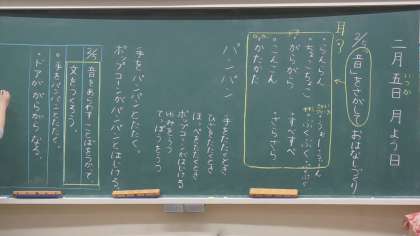 二月五日月よう日
いつか
2/5 音をさがしておはなしづくり
耳?
・らんらん
・ちょこちょこ
・がらがら
・こんこん
・かたかた
すべすべ
さらさら
パンパン
手をたたくとき
ひざをたたくとき
ほっぺをたたくとき
ポップコーンがはじける
てっぽうをうつ
手をパンパンとたたく。
ポップコーンがパンパンとはじける。
2/5 音をあらわすことばをつかって、
文をつくろう。
・手をパンパンとたたく。
・ドアががらがらなる。